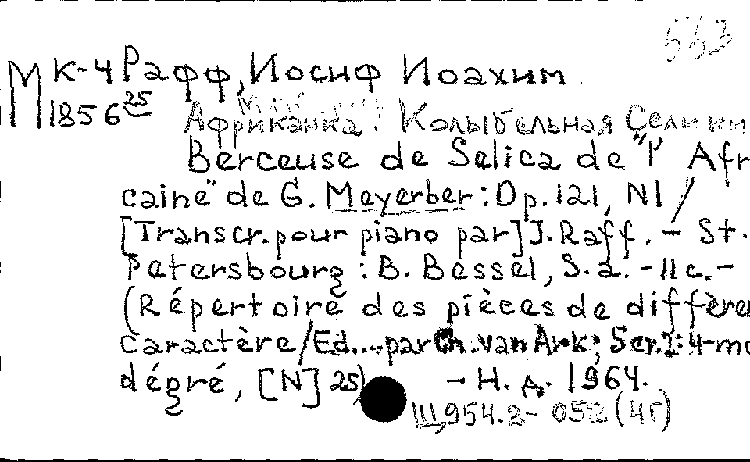 563
М К-4 Рафф, Иосиф Иоахим
1856 25 Африканка. Колыбельная Селики
Berceuse de Selica de "l' Afri
caine" de G. Meyerber: Op. 121, N1 /
[Transcr. pour piano par] J. Raff. - St.-
Petersbourg: B. Bessel, S. a. - 11 c. -
(Répertoire des pièces de différe
caractère/Ed... par Ch. van Ark; Ser. I: 4-m
dégré, [N] 25) - Н. д. 1964.
Щ954.2- 052 (4Г)